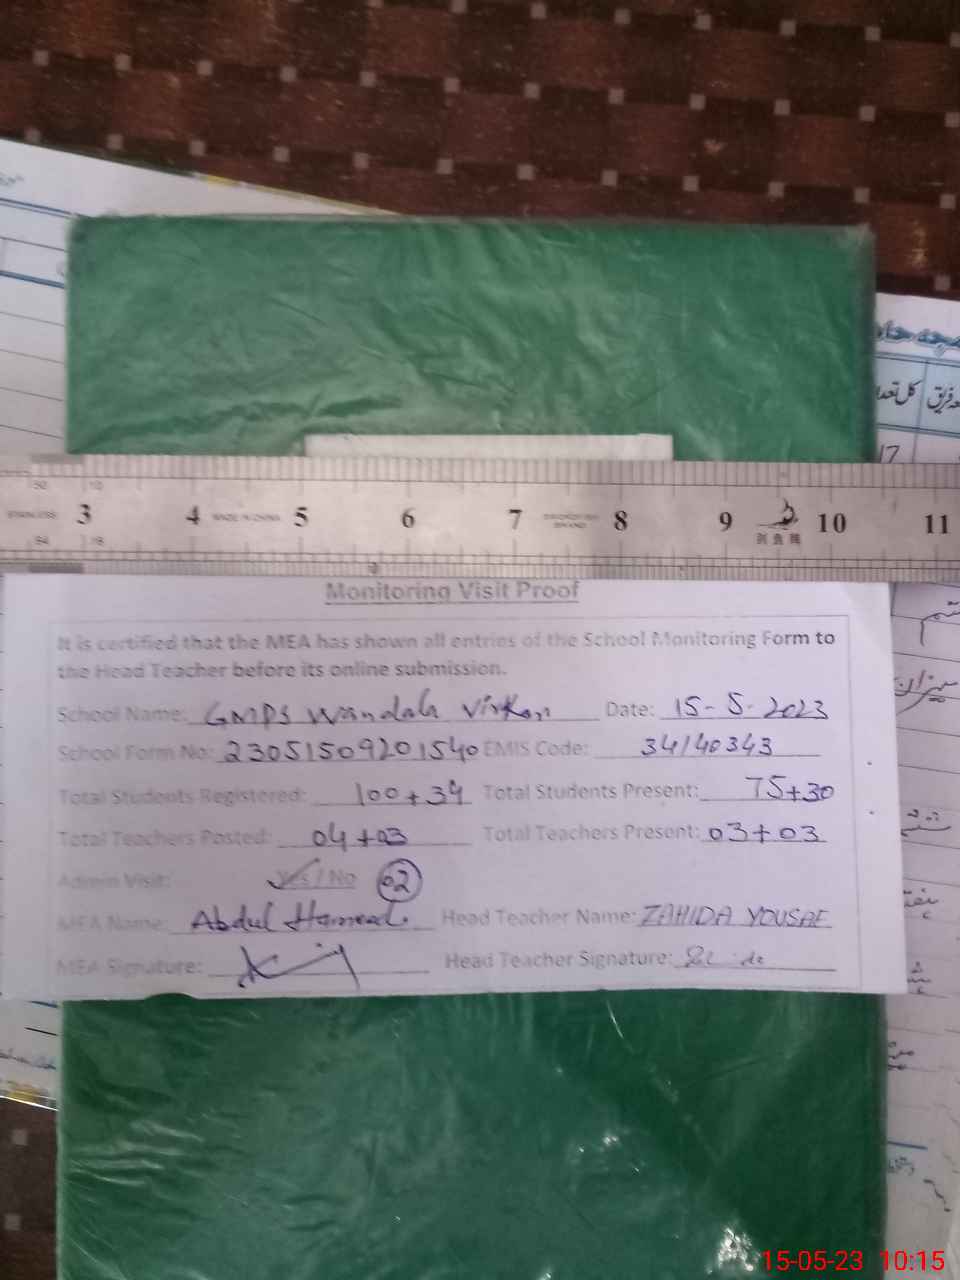 حاضر
کل تعداد
17
50 10
STAINLESS 3 4 MADE IN CHINA 5 6 7 8 9 10 11
64 16
Monitoring Visit Proof
It is certified that the MEA has shown all entries of the School Monitoring Form to
the Head Teacher before its online submission.
School Name: GMPS Wandala Virkan Date: 15-5-2023
School Form No: 23051509201540 EMIS Code: 34140343
Total Students Registered: 100+34 Total Students Present: 75+30
Total Teachers Posted: 04+03 Total Teachers Present: 03+03
Admin Visit: Yes / No 02
MEA Name: Abdul Hameed. Head Teacher Name: ZAHIDA YOUSAF
MEA Signature: Head Teacher Signature:
میزان
15-05-23 10:15